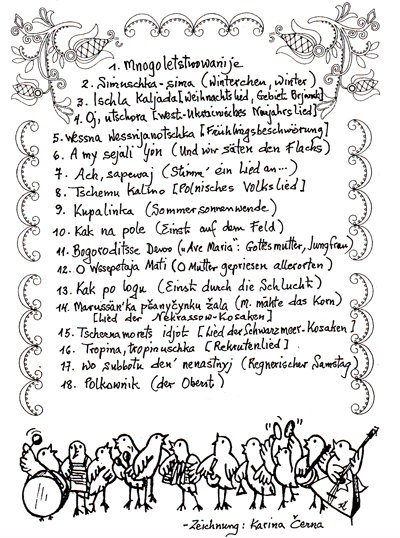 1. Mnogoletstwowanije
2. Simuschka-sima (Winterchen, Winter)
3. Ischla Kaljada [Weihnachtslied, Gebiet Brjansk]
4. Oj, utschora [West-Ukrainisches Neujahrslied]
5. Wessna wessnjanotschka [Frühlingsbeschwörung]
6. A my sejali ljon (Und wir säten den Flachs)
7. Ach, sapewaj (Stimm' ein Lied an...)
8. Tschemu kalino [Polnisches Volkslied]
9. Kupalinka (Sommersonnenwende)
10. Kak na pole (Einst auf dem Feld)
11. Bogoroditsse Dewo („Ave Maria": Gottesmutter, Jungfrau)
12. O Wsepetaja Mati (O Mutter gepriesen allerorten)
13. Kak po logu (Einst durch die Schlucht)
14. Marussän'ka pšanyčynku žala (M. mähte das Korn)
[Lied der Nekrassow-Kosaken]
15. Tschernamorets idjot [Lied der Schwarzmeer-Kosaken]
16. Tropina, tropinuschka [Rekrutenlied]
17. Wo subbotu den' nenastnyj (Regnerischer Samstag)
18. Polkownik (der Oberst)
-Zeichnung: Karina Černa